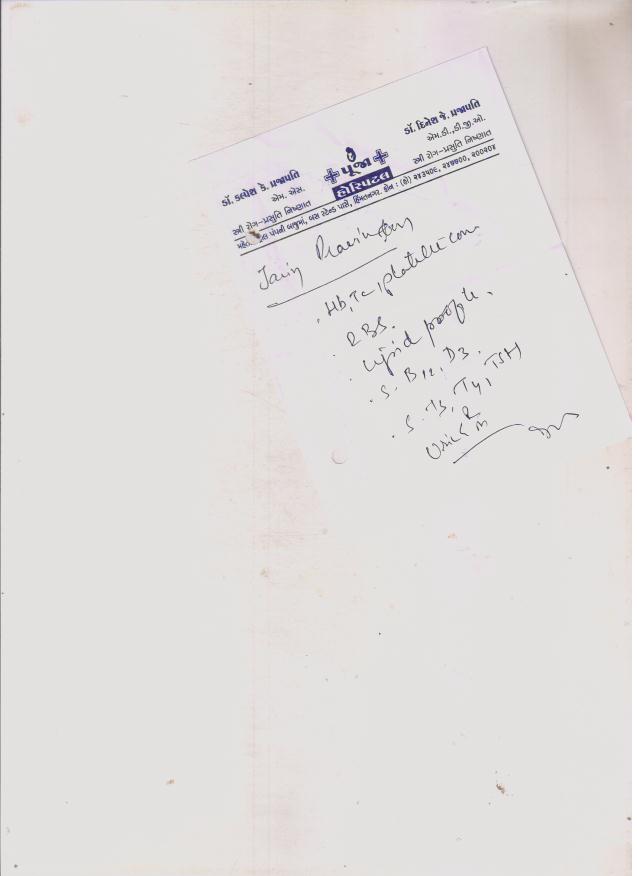 ડૉ. કલ્પેશ કે. પ્રજાપતિ
એમ. એસ.
સ્ત્રી રોગ-પ્રસુતિ નિષ્ણાત
પૂજા
હોસ્પિટલ
ડૉ. દિનેશ જે. પ્રજાપતિ
એમ.ડી.,ડી.જી.ઓ.
સ્ત્રી રોગ-પ્રસુતિ નિષ્ણાત
પંપની બાજુમાં, બસ સ્ટેન્ડ પાસે, હિંમતનગર. ફોન : (હો) ૨૪૩૫૦૯, ૨૪૭૭૦૦, ૨૦૦૨૦૪
. Hb, Tc, platelet coun
. RBS.
. Lipid profile.
. S. B12, D3.
. S. T3, T4, TSH
Urine R